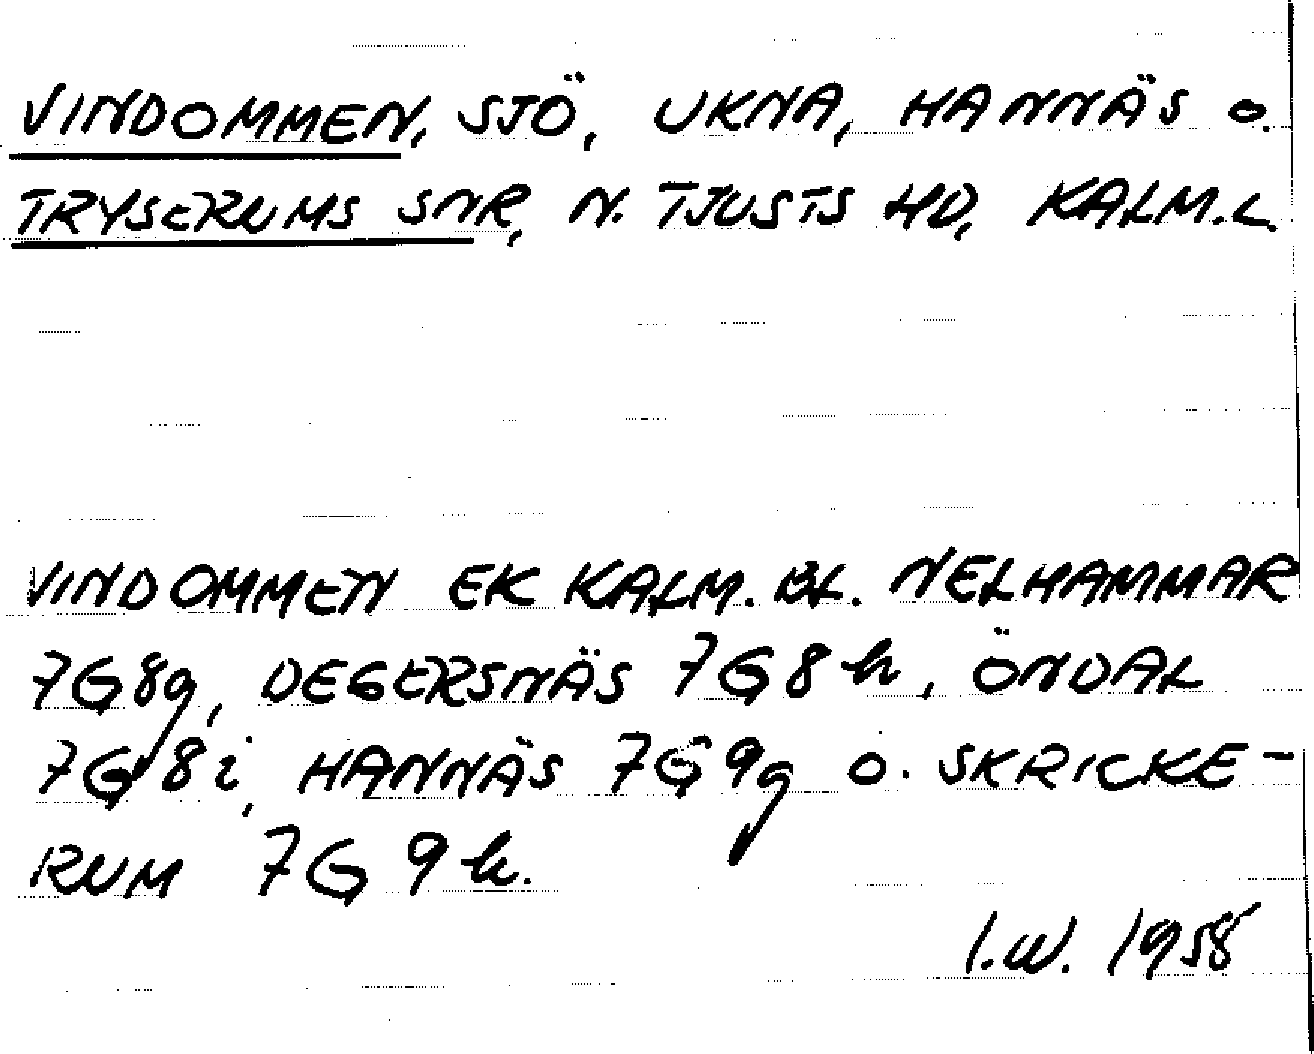 VINDOMMEN, SJÖ, UKNA, HANNÄS O.
TRYSERUMS SNR, N. TJUSTS HD, KALM. L.
VINDOMMEN EK KALM. BL. NELHAMMAR
7G8g, DEGERSNÄS 7G8h, ÖNDAL
7G8i, HANNÄS 7G9g O. SKRICKE-
RUM 7G9h.
I.W. 1958